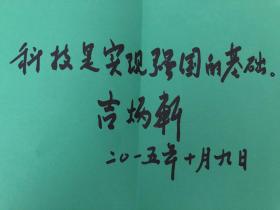 科技是实现强国的基础。
吉炳轩
二〇一五年十月九日